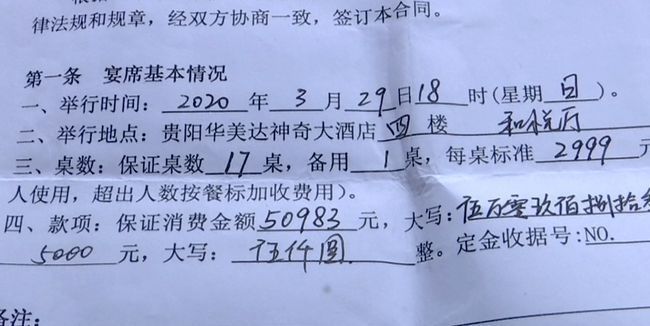 律法规和规章，经双方协商一致，签订本合同。
第一条 宴席基本情况
一、举行时间：2020年3月29日18时(星期日)。
二、举行地点：贵阳华美达神奇大酒店四楼 和悦厅
三、桌数：保证桌数17桌，备用1桌，每桌标准2999元
人使用，超出人数按餐标加收费用)。
四、款项：保证消费金额50983元，大写：伍万零玖佰捌拾叁
5000元，大写：伍仟圆整。定金收据号：NO.
备注：